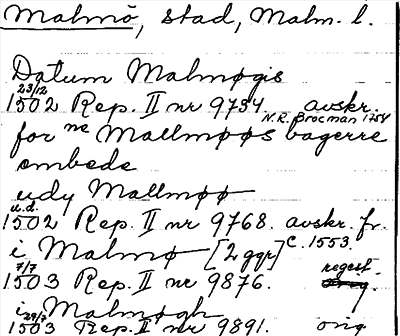 Malmö, stad, Malm. l.
Datum Malmøgis
23/12
1502 Rep. II nr 9754. avskr.
N.R. Brocman 1754
for ne Mallmøøs bagerre
ombede
udy Mallmøø
u.d.
1502 Rep. II nr 9768. avskr. fr.
i Malmø [2 ggr] c. 1553.
7/7 regest.
1503 Rep. II nr 9876.
i Malmøgh
29/7
1503 Rep. II nr 9891. orig.